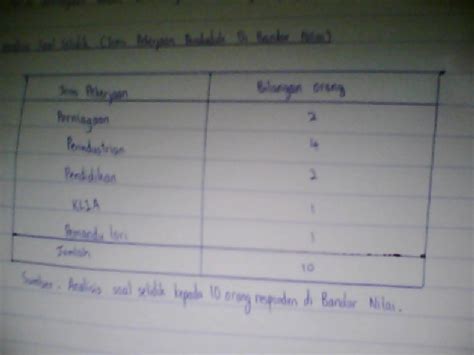 Analisis soal selidik (Jenis Pekerjaan Penduduk Di Bandar Nilai)
Jenis Pekerjaan Bilangan orang
Perniagaan 2
Perindustrian 4
Pendidikan 2
KLIA 1
Pemandu lori 1
Jumlah 10
Sumber : Analisis soal selidik kepada 10 orang responden di Bandar Nilai.